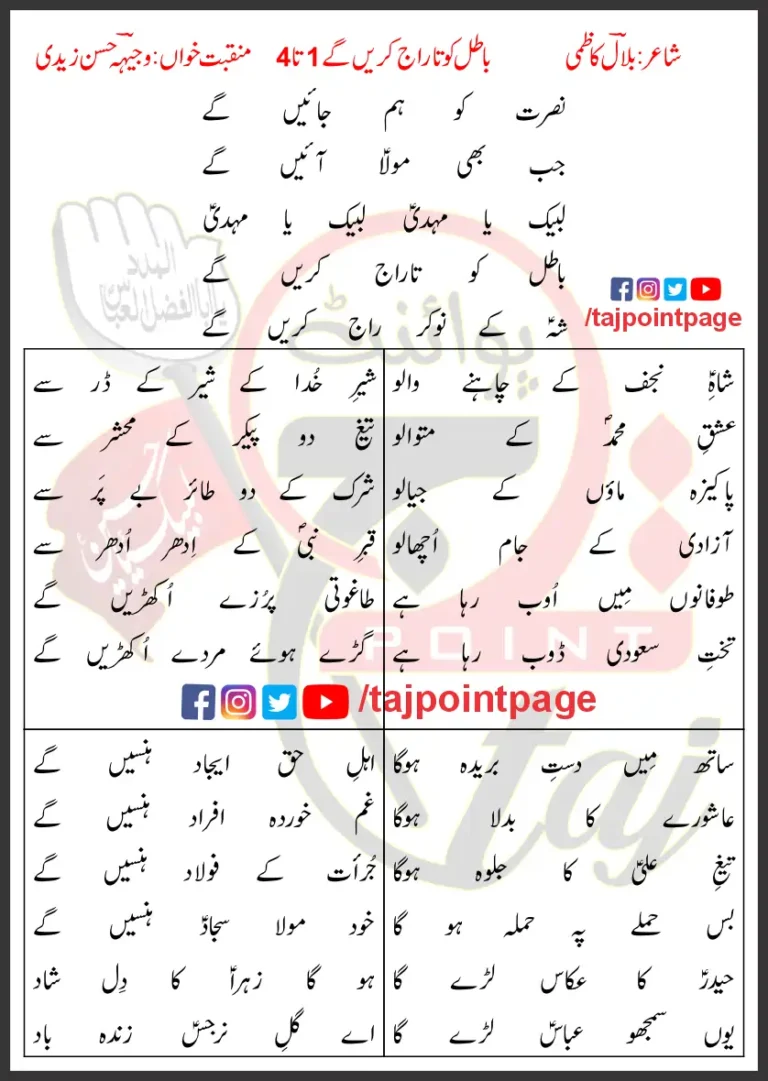 شاعر: بلالؔ کاظمی باطل کو تاراج کریں گے 1 تا 4 منقبت خواں: وجیہہ حسن زیدی
نصرت کو ہم جائیں گے
جب بھی مولاؑ آئیں گے
لبیک یا مہدیؑ لبیک یا مہدیؑ
باطل کو تاراج کریں گے
شہؑ کے نوکر راج کریں گے
/tajpointpage
شاہِؑ نجف کے چاہنے والو
عشقِ محمدؐ کے متوالو
پاکیزہ ماؤں کے جیالو
آزادی کے جام اُچھالو
طوفانوں مِیں اُوب رہا ہے
تختِ سعودی ڈوب رہا ہے
شیرِ خُدا کے شیر کے ڈر سے
تیغِ دو پیکر کے محشر سے
شرک کے دو طائر بے پَر سے
قبرِ نبیؐ کے اِدھر اُدھر سے
طاغوتی پرُزے اُکھڑیں گے
گڑے ہوئے مردے اُکھڑیں گے
/tajpointpage
ساتھ مِیں دستِ بریدہ ہوگا
عاشورے کا بدلا ہوگا
تیغِ علیؑ کا جلوہ ہوگا
بس حملے پہ حملہ ہو گا
حیدرؑ کا عکاس لڑے گا
یوں سمجھو عباسؑ لڑے گا
اہلِ حق ایجاد ہنسیں گے
غم خوردہ افراد ہنسیں گے
جُرأت کے فولاد ہنسیں گے
خود مولا سجادؑ ہنسیں گے
ہو گا زہراؑ کا دِل شاد
اے گلِ نرجسؑ زندہ باد
پوائنٹ
تاج
POINT
Taj
المدد
یا ابا الفضل العباسؑ
لبیک یا حسینؑ